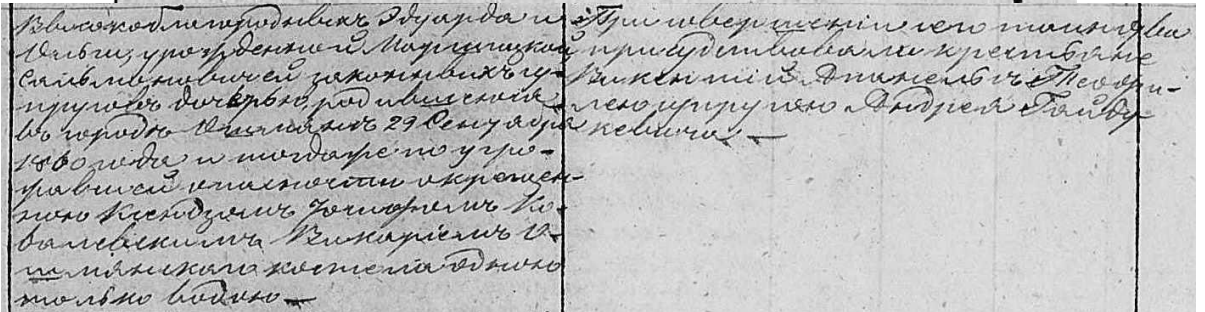 Высокоблагородныхъ Эдуарда и
Ольги, урожденной Маршицкой
законныхъ су-
пруговъ дочерью, родившеюся
въ городѣ Ошмянѣ 29 Сентября
1860 года и тогдаже по угро-
жавшей опасности окрещен-
ною Ксендзомъ Іосифомъ Ко-
валевскимъ Викаріемъ О-
шмянскаго костела одною
только водою.—
При совершеніи сего таинства
присудствовали крестьяне
Викентій съ Теофи-
лею супругою Андрея Гайду-
кевича.—